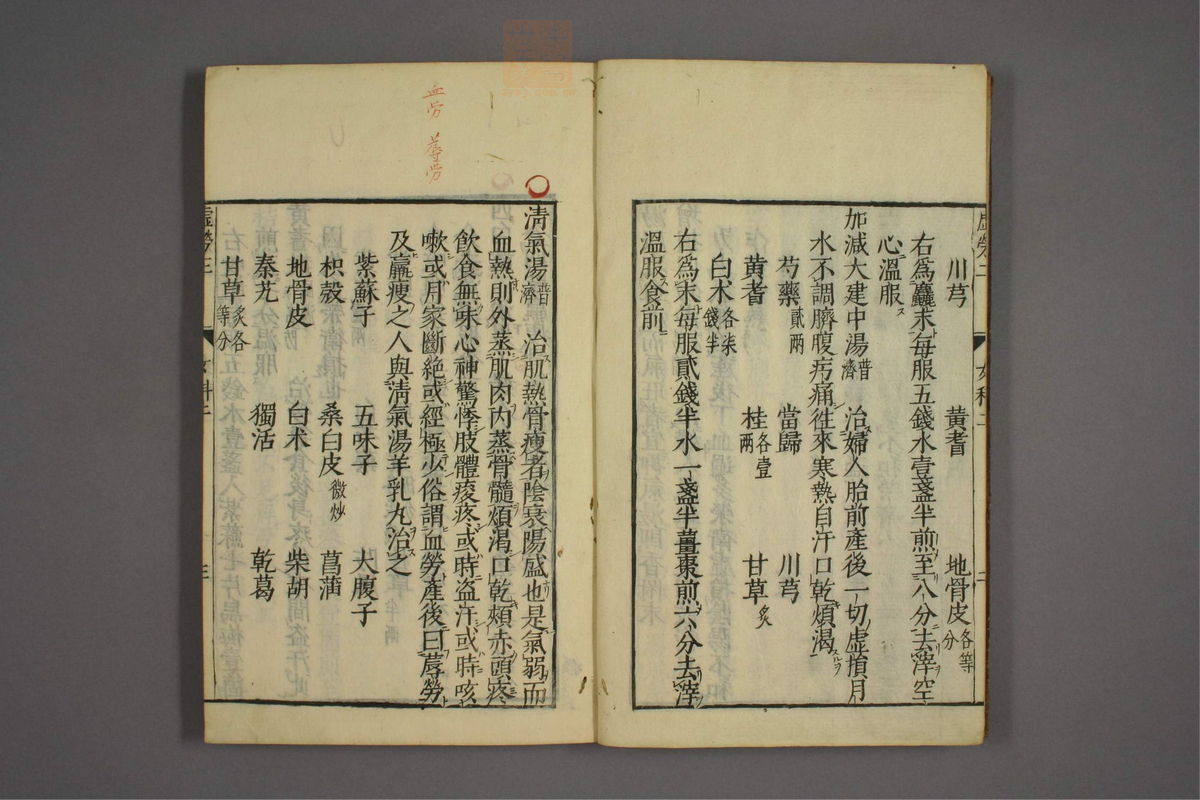 川芎 黄耆 地骨皮各等分
右爲麤末每服五錢水壹盞半煎至八分去滓空
心溫服
加減大建中湯普濟 治婦人胎前產後一切虛損月
水不調臍腹疞痛徃來寒熱自汗口乾煩渴
芍藥貳兩 當歸 川芎
黄耆 桂各壹兩 甘草炙
白术各柒錢半
右爲末每服貳錢半水一盞半薑棗煎六分去滓
溫服食前
清氣湯普濟 治肌熱骨瘦者陰衰陽盛也是氣弱而
血熱則外蒸肌肉内蒸骨髓煩渴口乾頰赤頭疼
飲食無味心神驚悸肢體痠疼或時盗汗或時咳
嗽或月家斷絶或經極少俗謂血勞產後曰蓐勞
及羸瘦之人與清氣湯羊乳丸治之
紫蘇子 五味子 大腹子
枳殼 桑白皮微炒 菖蒲
地骨皮 白术 柴胡
秦艽 獨活 乾葛
甘草炙各等分
血劳 蓐劳
虛勞三 女科二 三
女科二 二